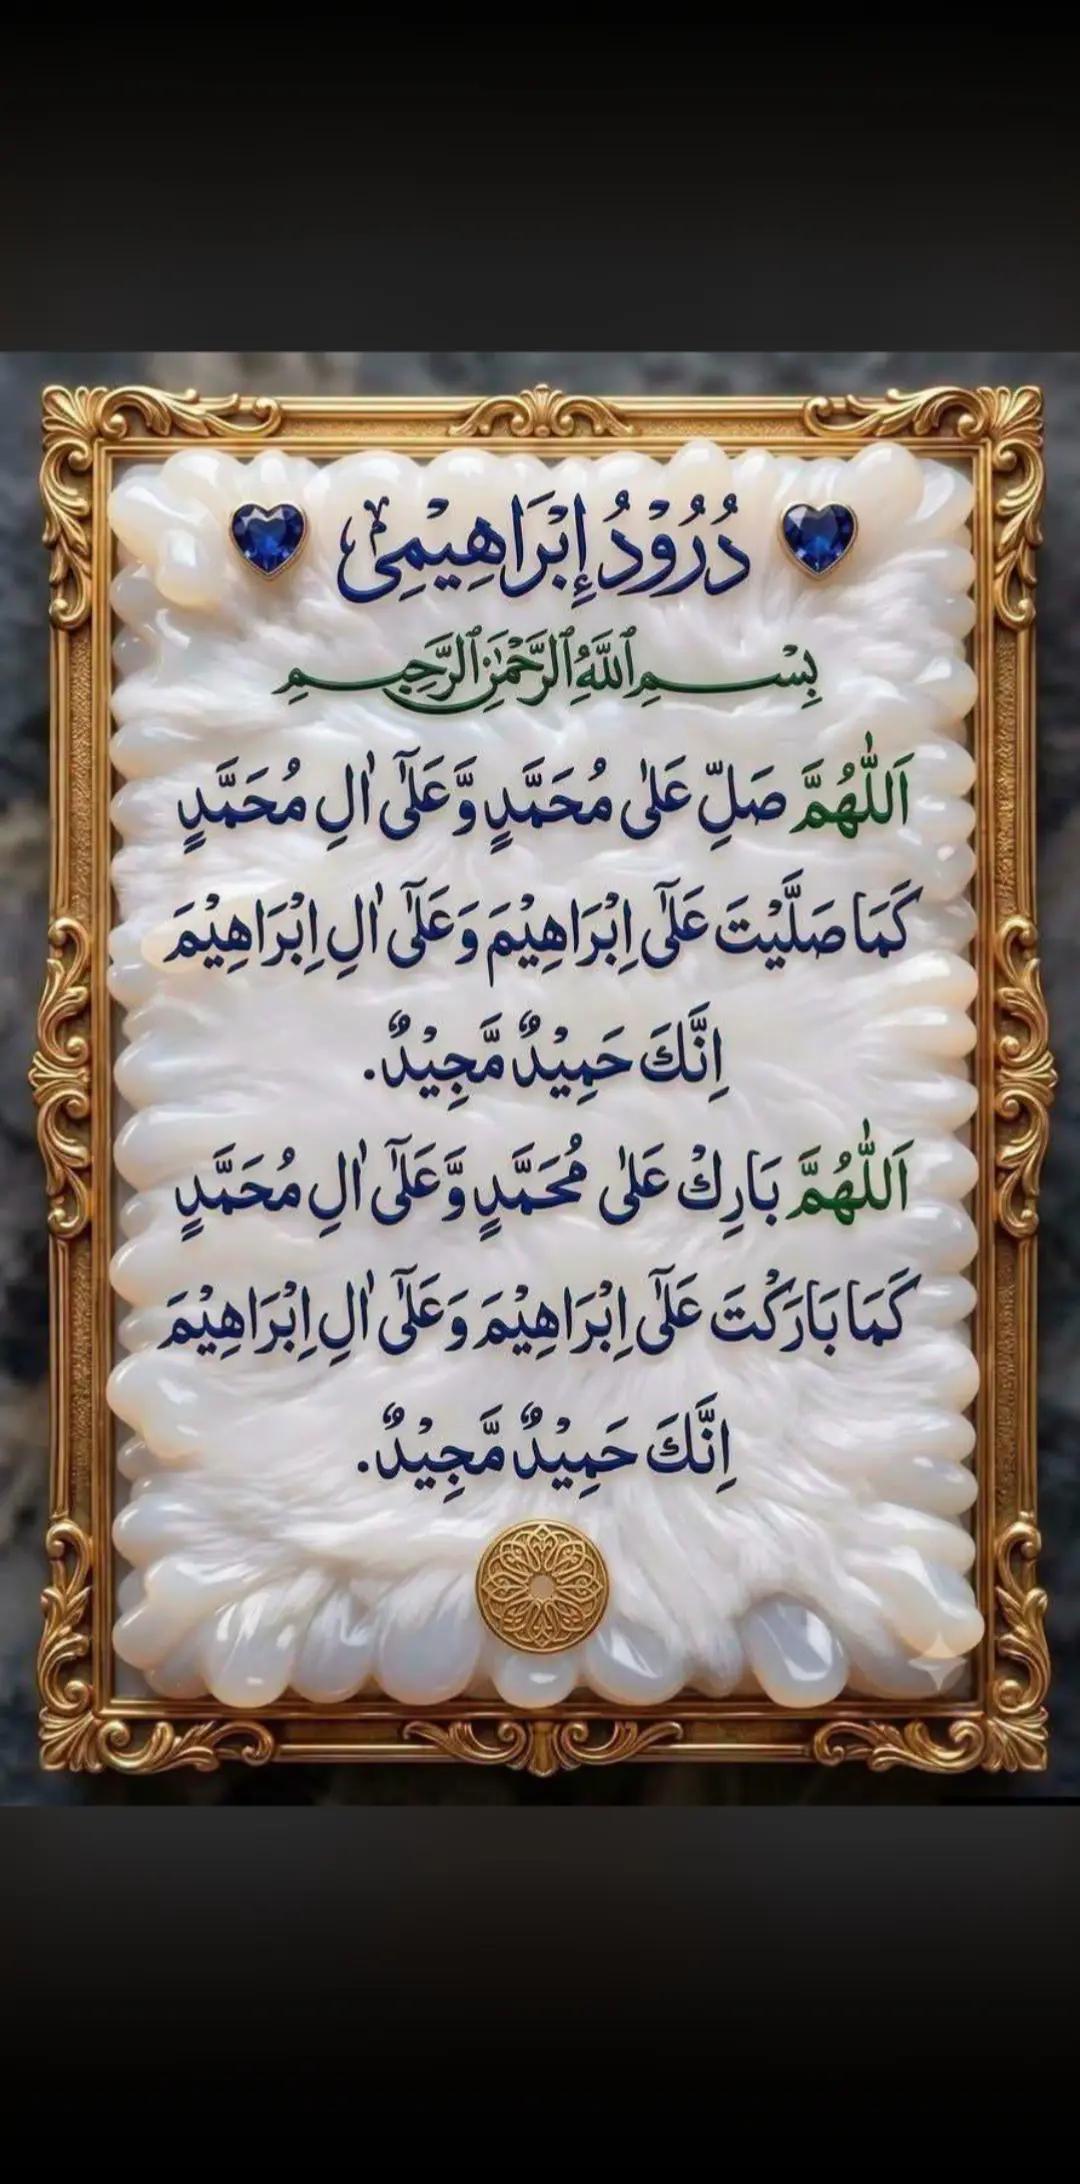 دُرُوْدُ إِبْرَاهِيْمِيْ
بِسْمِ ٱللَّهِ ٱلرَّحْمَٰنِ ٱلرَّحِيمِ
اَللّٰهُمَّ صَلِّ عَلٰى مُحَمَّدٍ وَّعَلٰٓى اٰلِ مُحَمَّدٍ
كَمَا صَلَّيْتَ عَلٰٓى اِبْرَاهِيْمَ وَعَلٰٓى اٰلِ اِبْرَاهِيْمَ
اِنَّكَ حَمِيْدٌ مَّجِيْدٌ.
اَللّٰهُمَّ بَارِكْ عَلٰى مُحَمَّدٍ وَّعَلٰٓى اٰلِ مُحَمَّدٍ
كَمَا بَارَكْتَ عَلٰٓى اِبْرَاهِيْمَ وَعَلٰٓى اٰلِ اِبْرَاهِيْمَ
اِنَّكَ حَمِيْدٌ مَّجِيْدٌ.